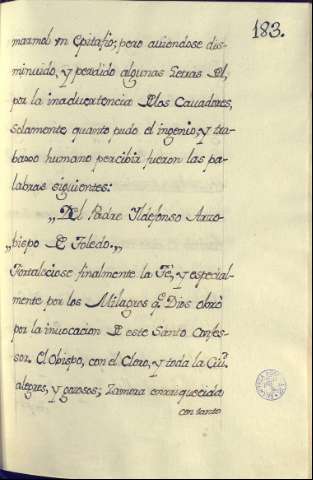 183.
marmol vn Epitafio; pero auiendose dis-
minuido, y perdido algunas Letras Del,
por la inaduertencia De los Cauadores,
solamente quanto pudo el ingenio, y tra-
baxo humano percibir fueron las pa-
labras siguientes:
„Del Padre Ildefonso Arzo-
„bispo De Toledo.„
Fortaleciose finalmente la Fe, y especial-
mente por los Milagros q.e Dios obró
por la inuocacion De este Santo Confes-
sor. El Obispo, con el Clero, y toda la Ciu.d
alegres, y gozosos; Zamora enrriquecida
con tanto